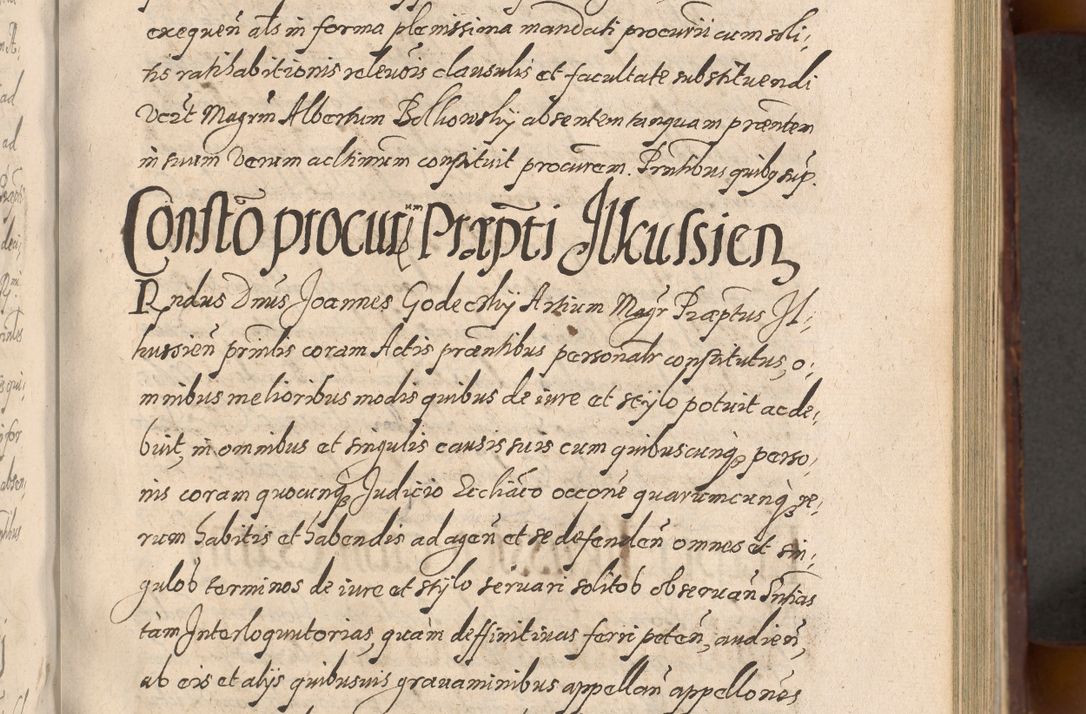 exequeñ als in forma plenissima mandati procurii cum soli,
tis ratihabitionis releuõis clausulis et facultate substituendi
Vezt Magrm Albertum Bolkowskij absentem tanquam præntem
in suum Verum actimum constituit procurem. Prntibus quibq sup.
Constõ procur Præpti Ilkussien
Rndus Dnus Joannes Godeckij Artium Magr Præptus Il,
kussieñ printis coram Actis præntibus personalr constitutus, o,
mnibus melioribus modis quibus de iure et stijlo potuit ac de,
buit, in omnibus et singulis causis suis cum quibuscunq perso,
nis coram quocunq Judicio Eccliãco occõne quarumcunq re,
rum habitis et habendis ad ageñ et se defendeñ omnes et sin,
gulos terminos de iure et stijlo seruari solitos obseruañ Sntias
tam Interloquutorias, quàm deffinitiuas ferri peteñ, audieñ,
ab eis et alijs quibusuis grauaminibus appellañ appellones